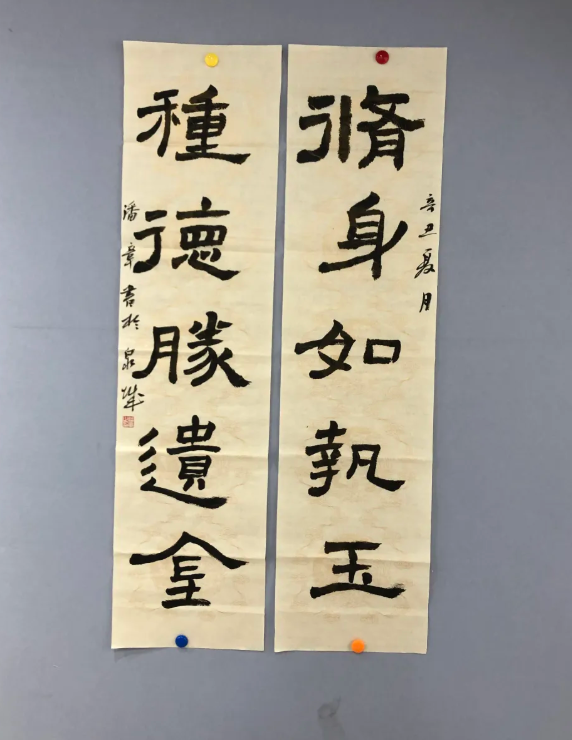 辛丑夏月
脩身如執玉
種德勝遺金
潘章書於泉城